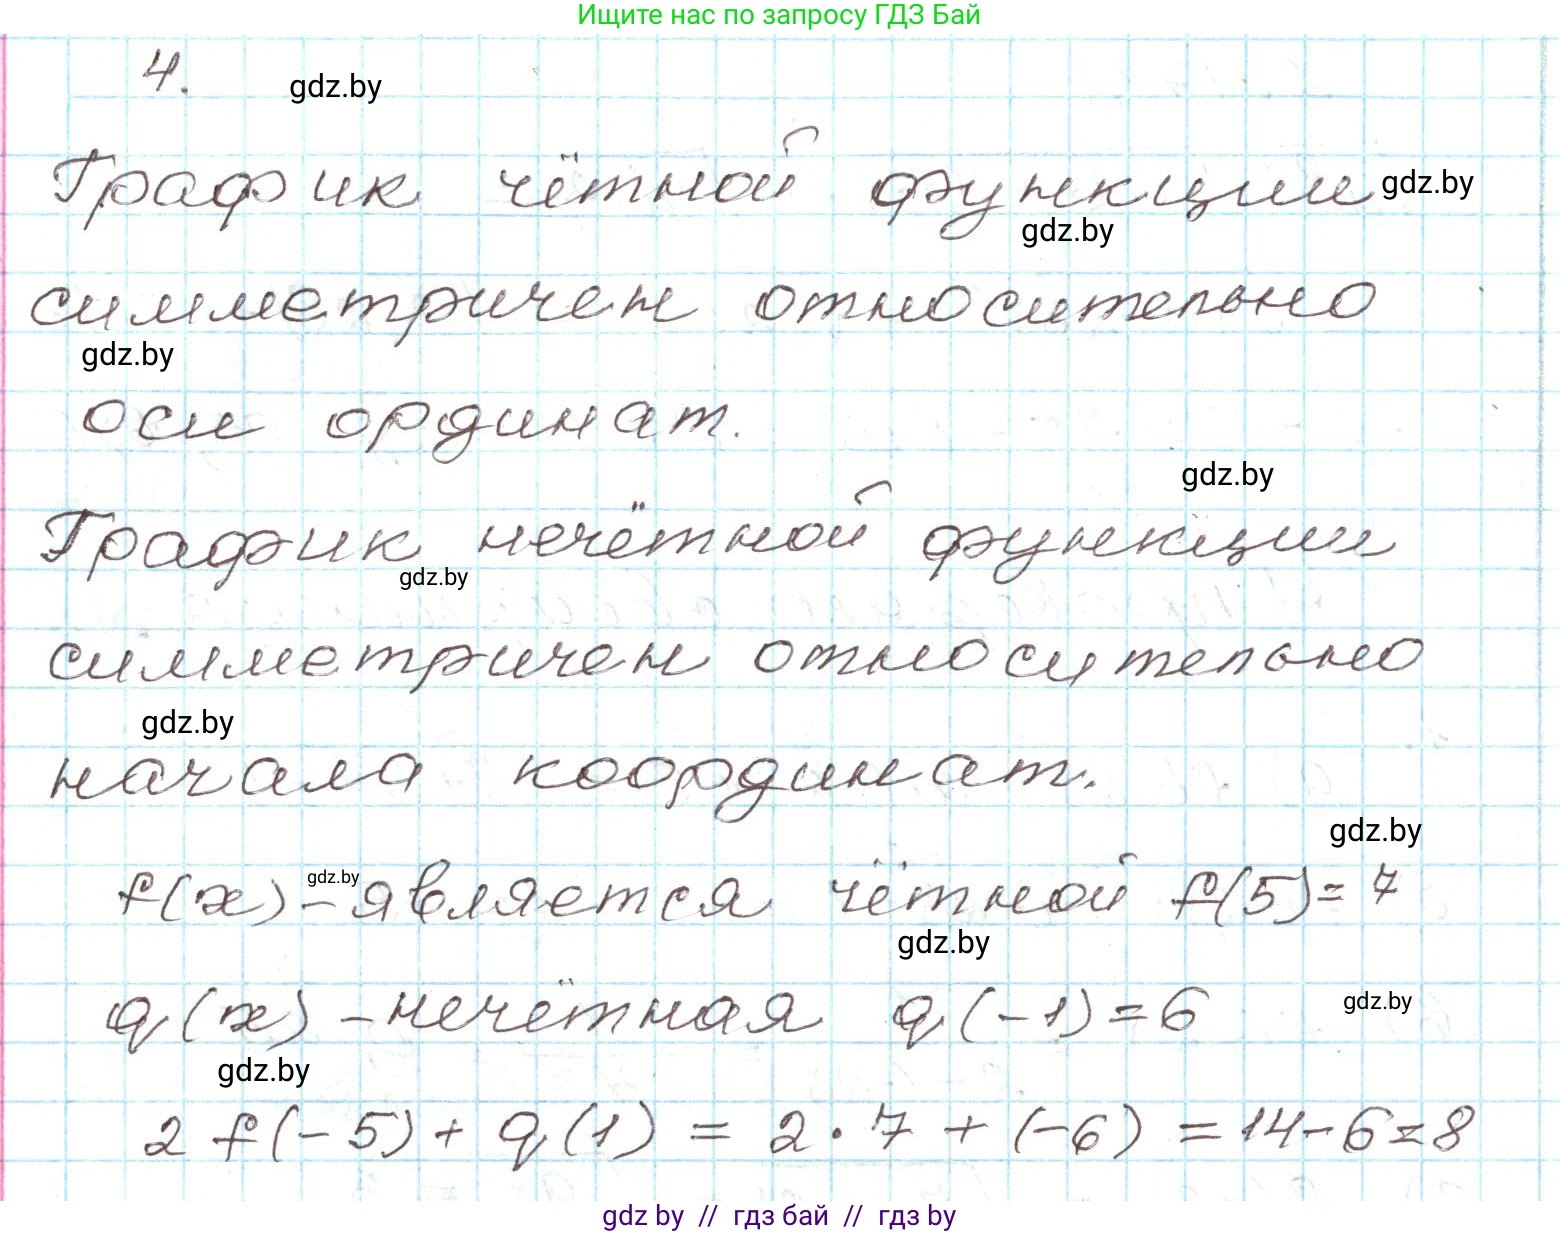 Ищите нас по запросу ГДЗ Бай
4.
gdz.by
График чётной функции gdz.by
gdz.by
симметричен относительно
gdz.by
оси ординат.
gdz.by
График нечётной функции
gdz.by
симметричен относительно
gdz.by
начала координат.
gdz.by
f(x) - gdz.by является чётной f(5) = 7
gdz.by
q(x) - нечётная q(-1) = 6 gdz.by
gdz.by
2 f(-5) + q(1) = 2 · 7 + (-6) = 14 - 6 = 8
gdz by // гдз бай // gdz by